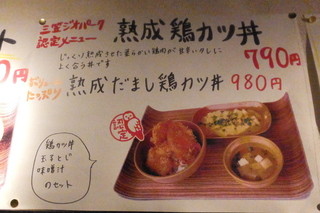 三笠ジオパーク
認定メニュー
熟成鶏カツ丼
じっくり熟成させた柔らかい鶏肉が甘辛いタレに
よく合う丼です
790円
たっぷり
熟成だまし鶏カツ丼 980円
認定
鶏カツ丼
玉子とじ
味噌汁
のセット